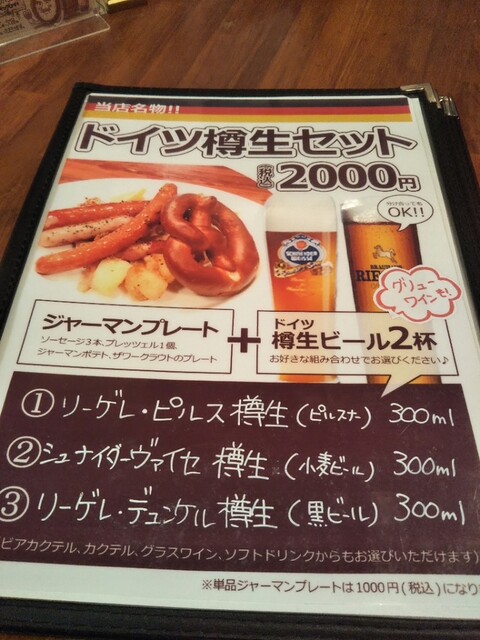 当店名物!!
ドイツ樽生セット
税込 2000円
分け合っても
OK!!
SCHNEIDER
WEISSE
グリュー
ワインも!
ジャーマンプレート
ソーセージ3本、プレッツェル1個、
ジャーマンポテト、ザワークラウトのプレート
+
ドイツ
樽生ビール2杯
お好きな組み合わせでお選びください♪
①リーゲレ・ピルス樽生(ピルスナー) 300ml
②シュナイダーヴァイセ 樽生(小麦ビール) 300ml
③リーゲレ・デュンケル樽生(黒ビール) 300ml
(ビアカクテル、カクテル、グラスワイン、ソフトドリンクからもお選びいただけます)
※単品ジャーマンプレートは1000円(税込)になり